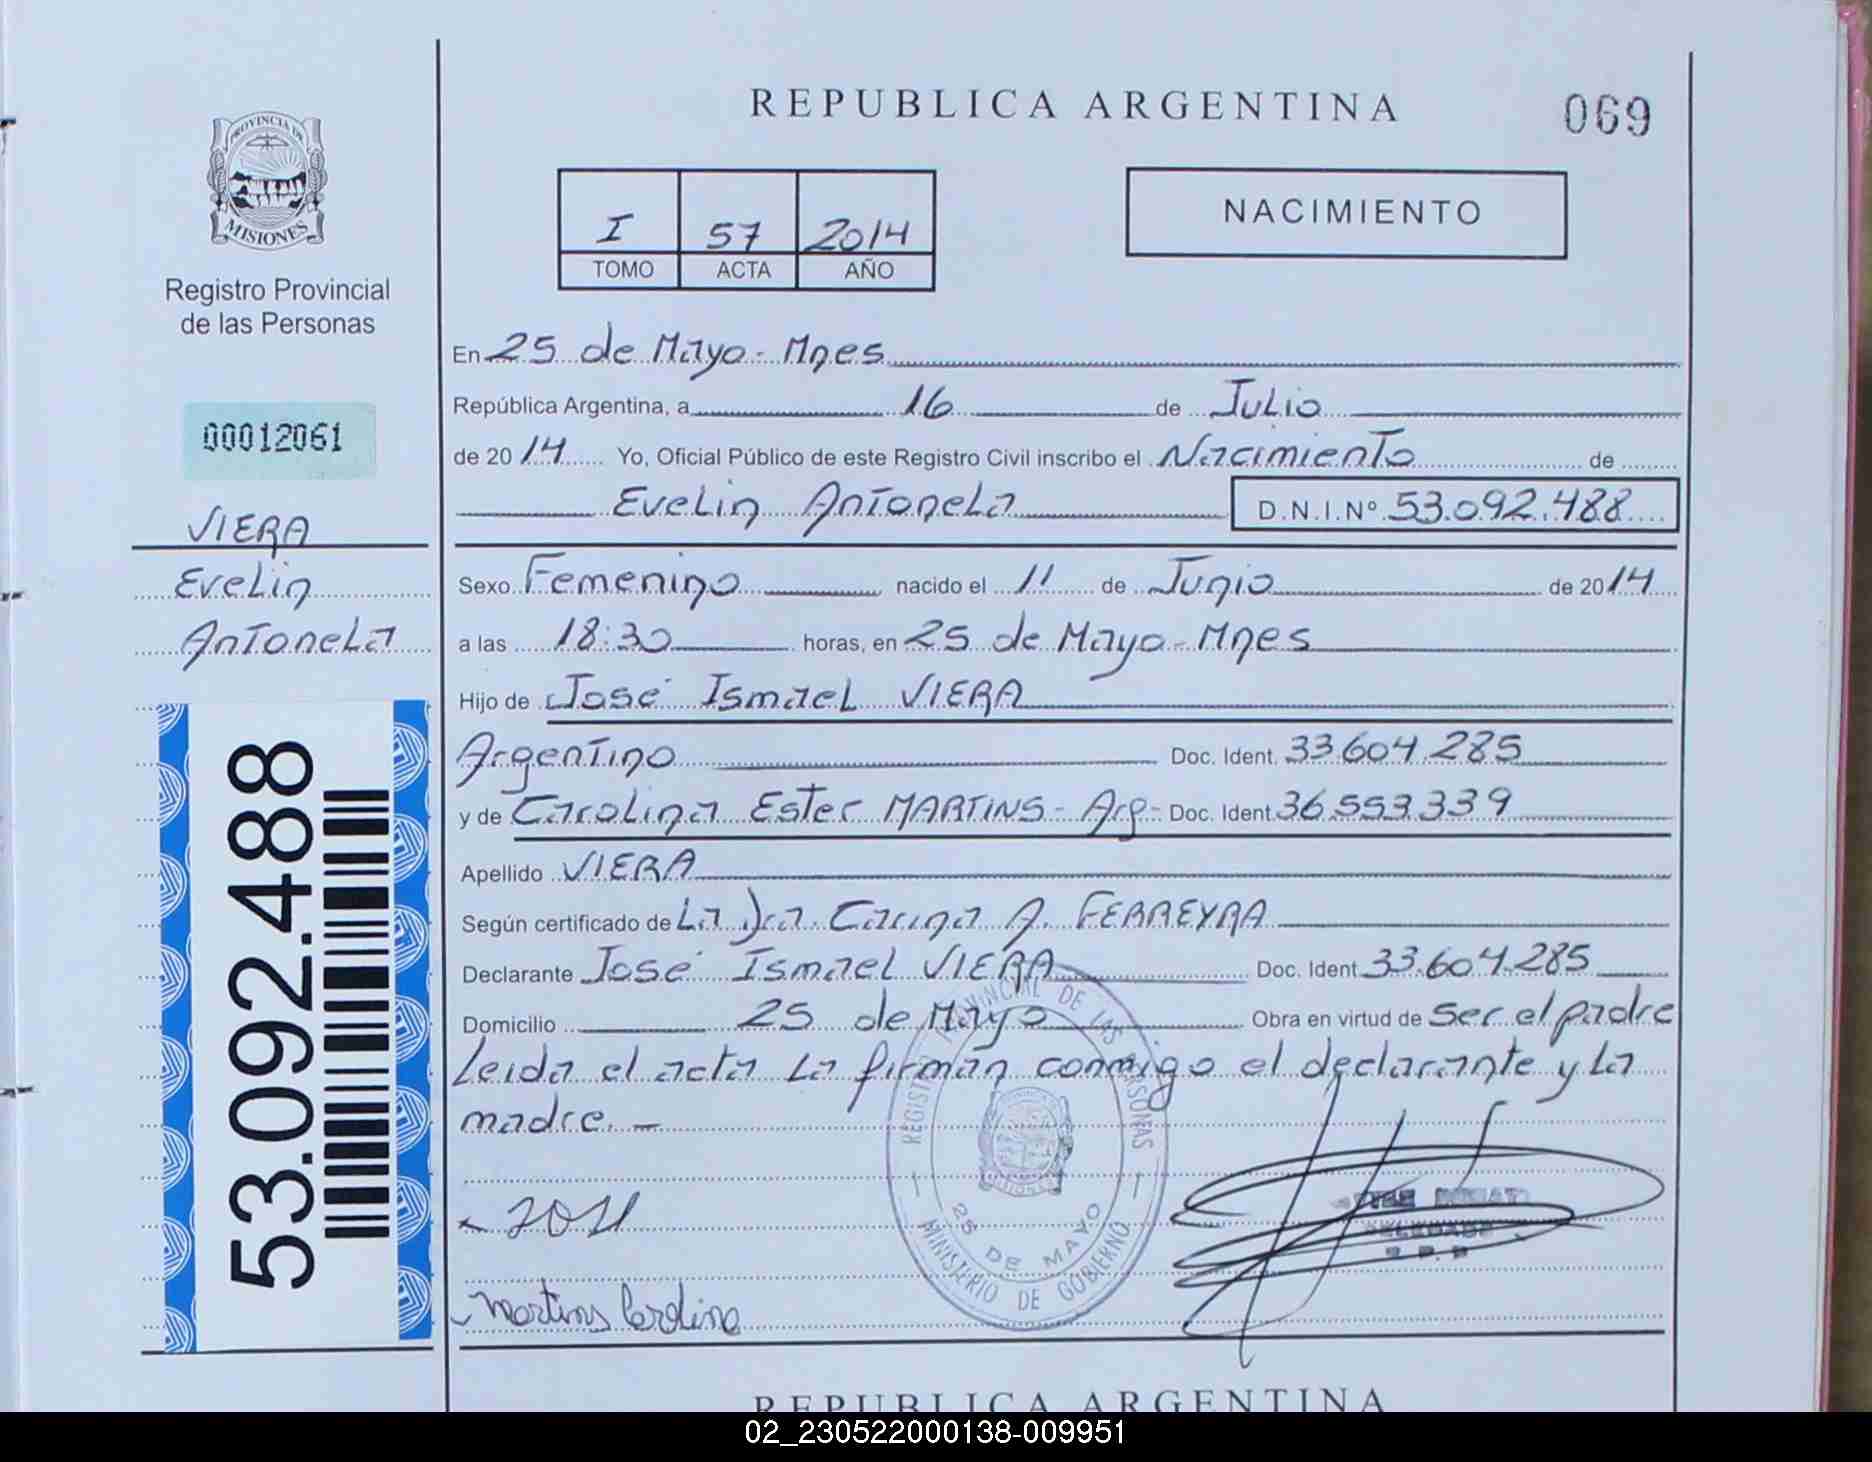 PROVINCIA DE
MISIONES
Registro Provincial
de las Personas
00012061
VIERA
Evelin
Antonela
53.092.488
REPUBLICA ARGENTINA
069
I 57 2014
TOMO ACTA AÑO
NACIMIENTO
En 25 de Mayo - Mnes
República Argentina, a 16 de Julio
de 2014 Yo, Oficial Público de este Registro Civil inscribo el Nacimiento de
Evelin Antonela D.N.I.Nº 53.092.488
Sexo Femenino nacido el 11 de Junio de 2014
a las 18:30 horas, en 25 de Mayo - Mnes
Hijo de José Ismael VIERA
Argentino Doc. Ident. 33.604.285
y de Carolina Ester MARTINS - Arg- Doc. Ident. 36.553.339
Apellido VIERA
Según certificado de La Dra. Carina A. FERREYRA
Declarante José Ismael VIERA Doc. Ident. 33.604.285
Domicilio 25 de Mayo Obra en virtud de Ser el padre
Leida el acta La firman conmigo el declarante y La
madre. -
REGISTRO PROVINCIAL DE LAS PERSONAS
MISIONES
25 DE MAYO
MINISTERIO DE GOBIERNO
DELEGADO
Martins Carolina
REPUBLICA ARGENTINA
02_230522000138-009951